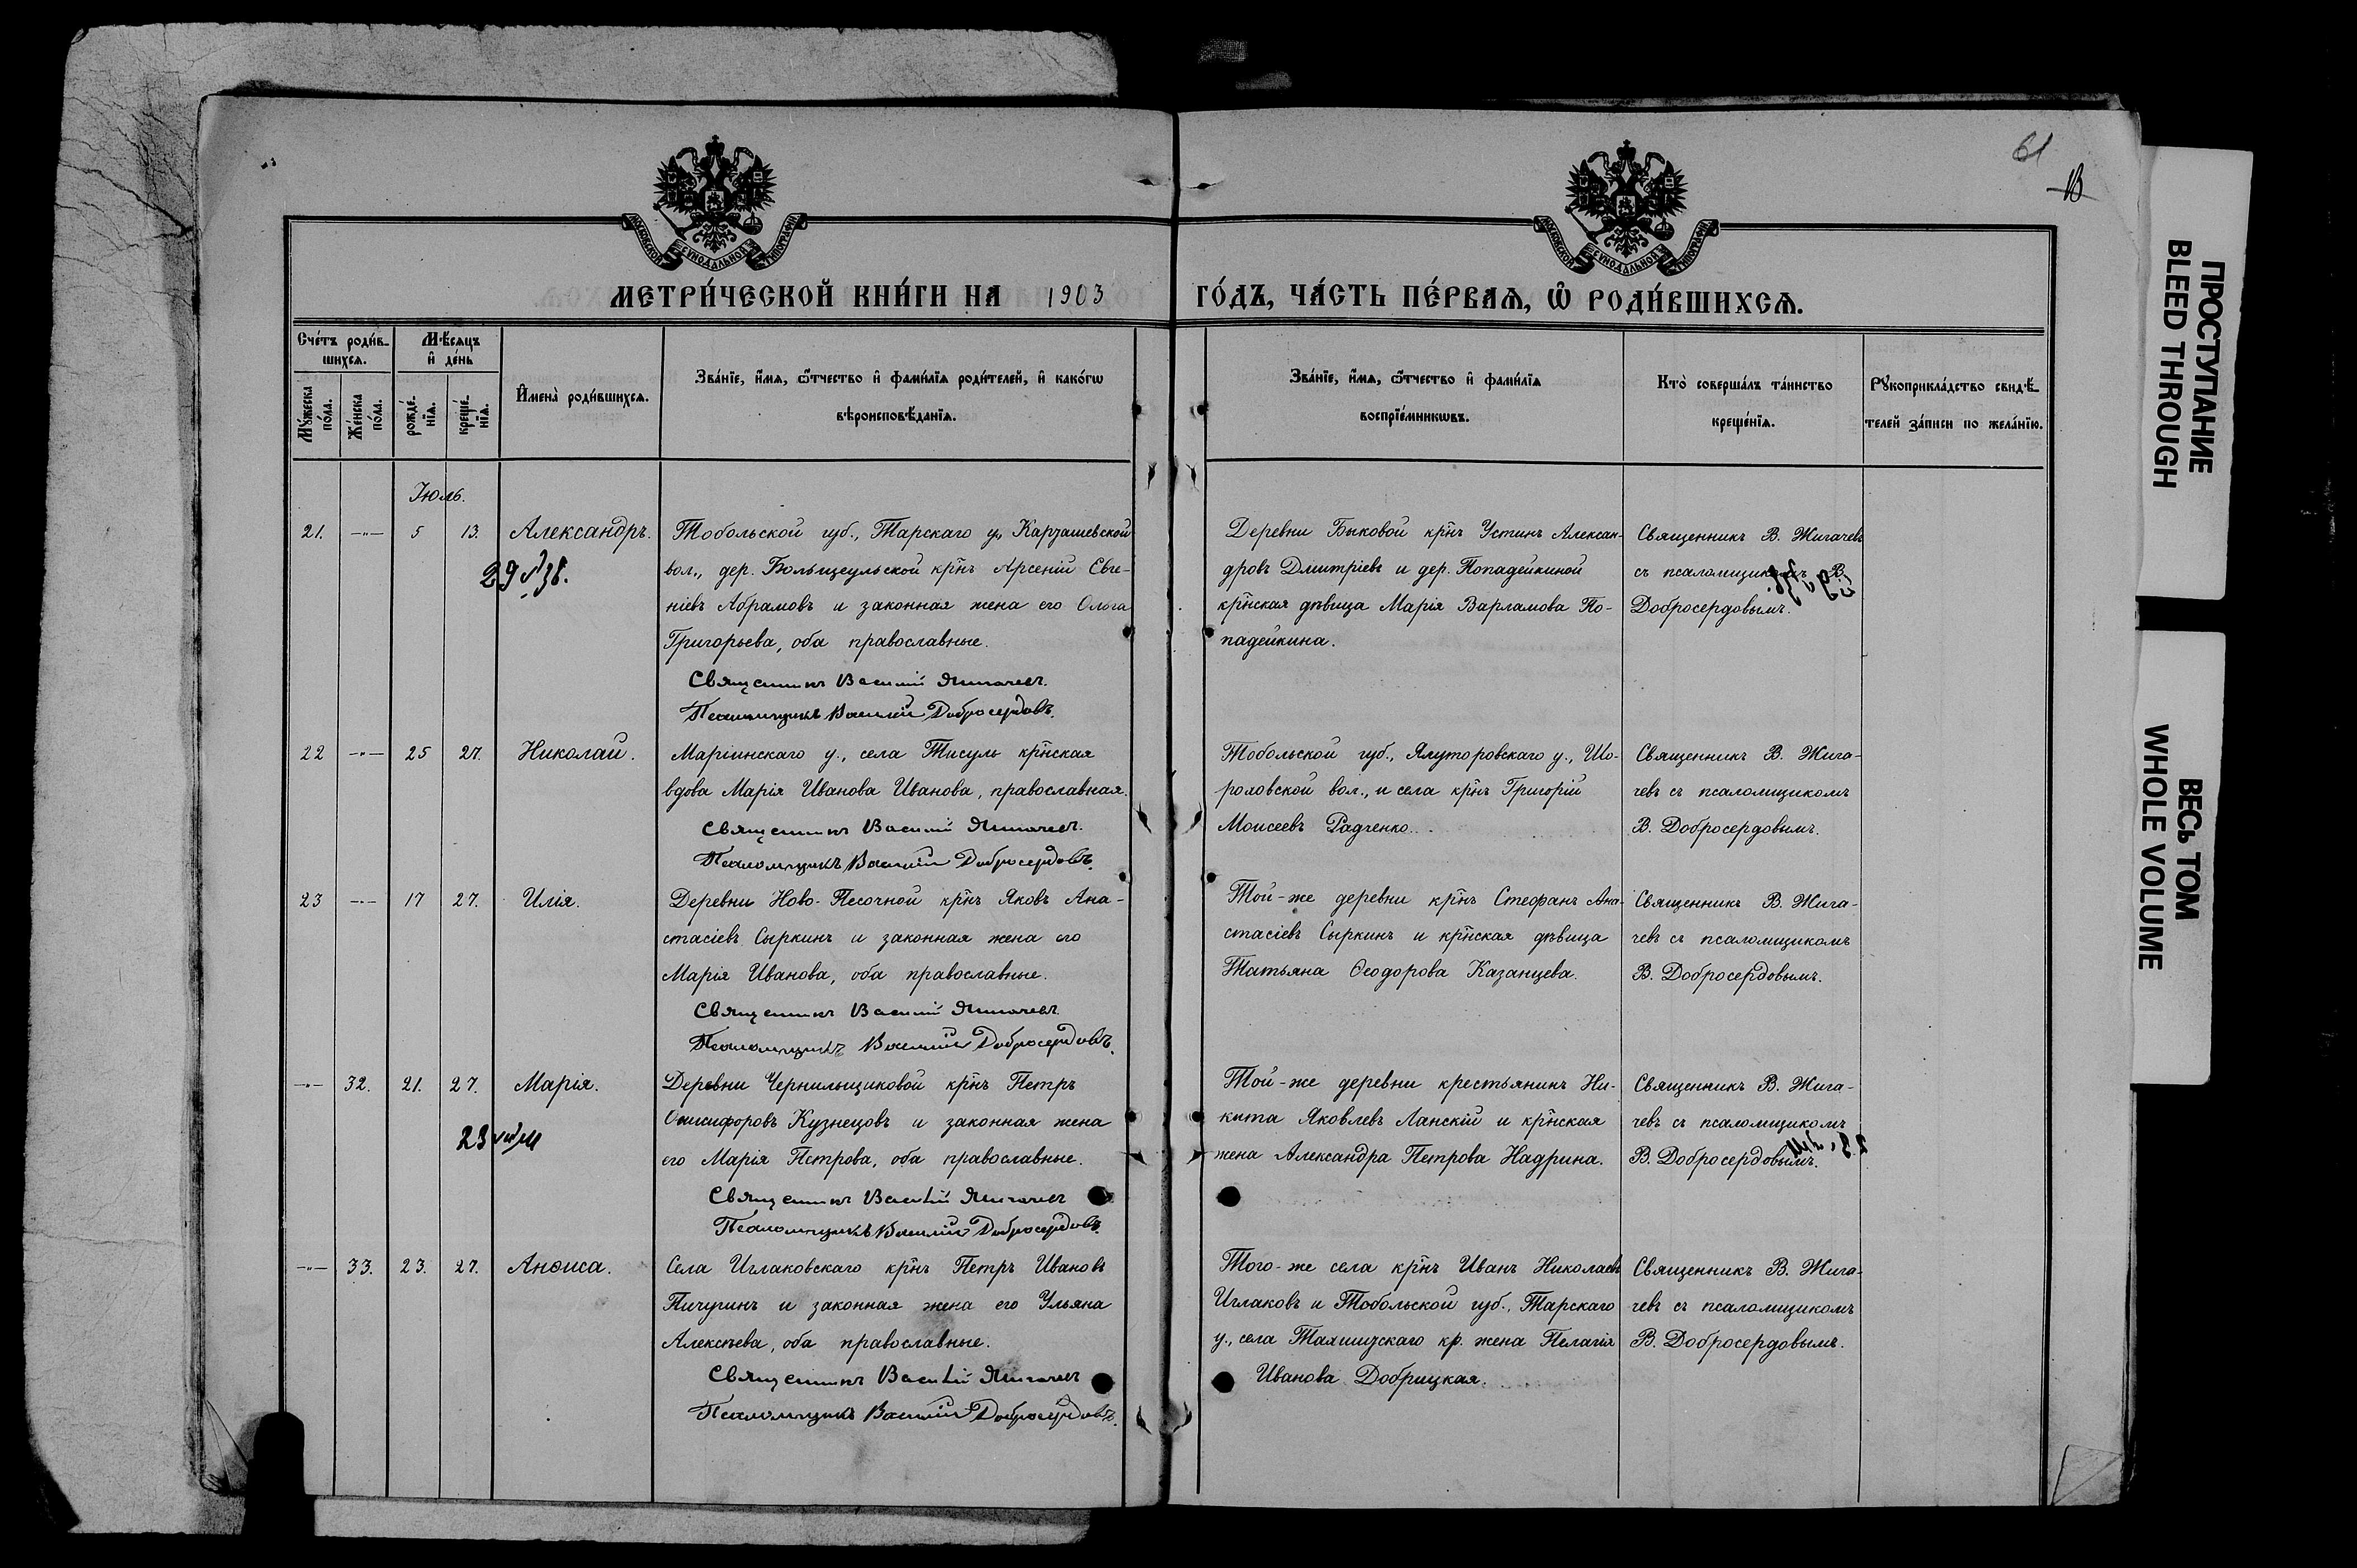 61
13
МОСКОВСКОЙ СѴНОДАЛЬНОЙ ТИПОГРАФІИ
МОСКОВСКОЙ СѴНОДАЛЬНОЙ ТИПОГРАФІИ
МЕТРИ́ЧЕСКОЙ КНИ́ГИ НА 1903 ГО́ДЪ, ЧА́СТЬ ПЕ́РВАЯ, Ѡ РОДИ́ВШИХСЯ.
Сче́тъ роди́в-
шихся.
Мѣсяцъ
и де́нь
Мꙋжеска по́ла.
Же́нска по́ла.
рожде́-
нїя.
креще́-
нїя.
Имена̀ роди́вшихся.
Зва́нїе, и́мя, ѻ́тчество и фами́лїя роди́телей, и како́гѡ
вѣроисповѣданїя.
Зва́нїе, и́мя, ѻ́тчество и фами́лїя
воспрїе́мникѡвъ.
Кто̀ соверша́лъ та́инство
креще́нїя.
Рꙋкоприкла́дство свидѣ-
телей за́писи по жела́нїю.
Іюль.
21. —"— 5 13. Александръ.
29 VI 38.
Тобольской губ., Тарскаго у., Карташевской
вол., дер. Большеульской кр̃нъ Арсеній Евге-
ніевъ Абрамовъ и законная жена его Ольга
Григорьева, оба православные.
Священникъ Василій Жигачевъ.
Псаломщикъ Василій Добросердовъ.
Деревни Быковой кр̃нъ Устинъ Алексан-
дровъ Дмитріевъ и дер. Попадейкиной
кр̃нская дѣвица Марія Варламова По-
падейкина.
Священникъ В. Жигачевъ
съ псаломщикомъ В.
Добросердовымъ.
22 —"— 25 27. Николай.
Маріинскаго у., села Тисуль кр̃нская
вдова Марія Иванова Иванова, православная.
Священникъ Василій Жигачевъ.
Псаломщикъ Василій Добросердовъ.
Тобольской губ., Ялуторовскаго у., Шо-
роховской вол., и села кр̃нъ Григорій
Моисеевъ Радченко.
Священникъ В. Жига-
чевъ съ псаломщикомъ
В. Добросердовымъ.
23 —"— 17 27. Илія.
Деревни Ново-Песочной кр̃нъ Яковъ Ана-
стасіевъ Сыркинъ и законная жена его
Марія Иванова, оба православные.
Священникъ Василій Жигачевъ.
Псаломщикъ Василій Добросердовъ.
Той-же деревни кр̃нъ Стефанъ Ана-
стасіевъ Сыркинъ и кр̃нская дѣвица
Татьяна Ѳеодорова Казанцева.
Священникъ В. Жига-
чевъ съ псаломщикомъ
В. Добросердовымъ.
—"— 32. 21. 27. Марія.
23 VII
Деревни Чернильщиковой кр̃нъ Петръ
Онисифоровъ Кузнецовъ и законная жена
его Марія Петрова, оба православные.
Священникъ Василій Жигачевъ
Псаломщикъ Василій Добросердовъ.
Той-же деревни крестьянинъ Ни-
кита Яковлевъ Ланскій и кр̃нская
жена Александра Петрова Надрина.
Священникъ В. Жига-
чевъ съ псаломщикомъ
В. Добросердовымъ.
—"— 33. 23. 27. Анѳиса.
Села Иглаковскаго кр̃нъ Петръ Ивановъ
Пичугинъ и законная жена его Ульяна
Алексѣева, оба православные.
Священникъ Василій Жигачевъ
Псаломщикъ Василій Добросердовъ.
Того-же села кр̃нъ Иванъ Николаевъ
Иглаковъ и Тобольской губ., Тарскаго
у., села кр. жена Пелагія
Иванова Добрицкая.
Священникъ В. Жига-
чевъ съ псаломщикомъ
В. Добросердовымъ.
ПРОСТУПАНИЕ
BLEED THROUGH
ВЕСЬ ТОМ
WHOLE VOLUME